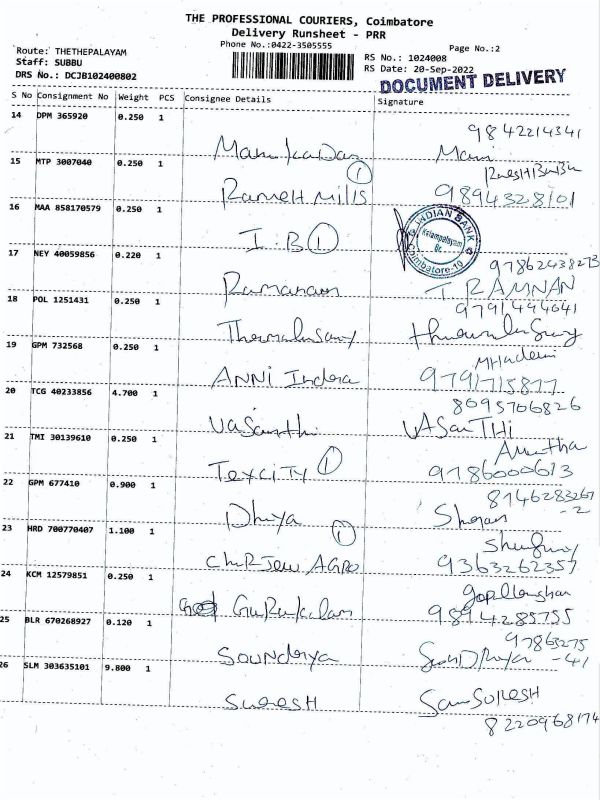 THE PROFESSIONAL COURIERS, Coimbatore
Delivery Runsheet - PRR
Phone No.:0422-3505555
Page No.:2
Route: THETHEPALAYAM
Staff: SUBBU
DRS No.: DCJB102400802
RS No.: 1024008
RS Date: 20-Sep-2022
DOCUMENT DELIVERY
S No Consignment No Weight PCS Consignee Details Signature
14 DPM 365920 0.250 1
9842214341
15 MTP 3007040 0.250 1
1
RameH. Mills 9894328101
16 MAA 858170579 0.250 1
INDIAN BANK
Coimbatore-10
I.B 1
17 NEY 40059856 0.220 1
97862438273
Ramanam T RAMNAN
18 POL 1251431 0.250 1
9791494641
19 GPM 732568 0.250 1
ANNI Indera 9791715877
20 TCG 40233856 4.700 1
8095706826
Vasanthi VASanTHi
21 TMI 30139610 0.250 1
Amutha
TexciTy 1 9786000613
22 GPM 677410 0.900 1
8146283267
-2
Dhiya
23 HRD 700770407 1.100 1
1
AGRO 9363262357
24 KCM 12579851 0.250 1
9894285755
25 BLR 670268927 0.120 1
97863275
-41
SOUNDarya
26 SLM 303635101 9.800 1
SureSH SURESH
8220968174